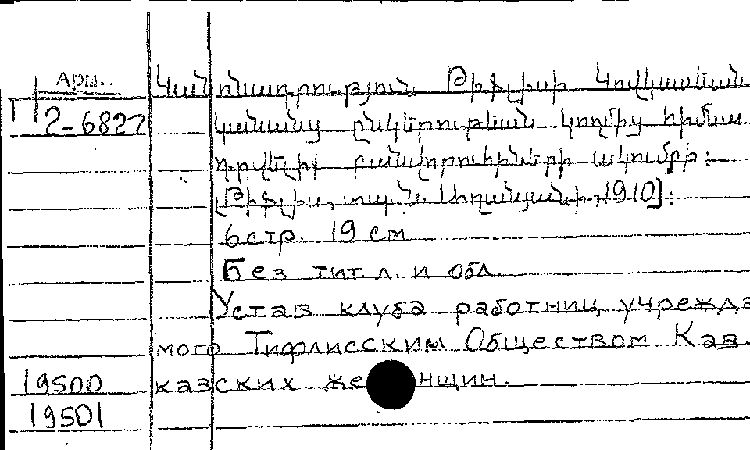 Арм.
Կանոնադրություն Թիֆլիսի Կովկասեան
П 2-6827
կանանց ընկերութեան կողմից հիմնա
դրվելիք բանվորուհիների ակումբի:
[Թիֆլիս, տպ. Ն. Աղանյանի, 1910]:
6 стр. 19 см
Без тит л. и обл.
Устав клуба работниц, учрежда
мого Тифлисским Обществом Кав.
19500 казских женщин.
19501